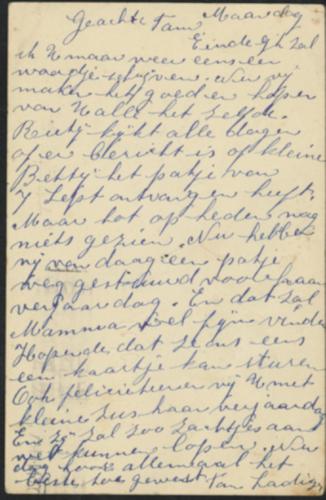 Maandag
Geachte Fam.
Eindelijk zal
ik U maar weer eens een
woordje schrijven. Nu wij
maken het goed en hopen
van U alle het zelfde.
Rietij kijkt alle dagen
of er bericht is of kleine
Bettij het patje van
7 Sept ontvangen heeft.
Maar tot op heden nog
niets gezien. Nu hebben
wij van daag een patje
weg gestuurd voor haar
verjaardag. En dat zal
Mamma wel fijn vinden
Hopende, dat ze ons eens
een kaartje kan sturen
Ook feliciteeren wij U met
kleine zus haar verjaardag
En zij zal zoo zachtjes aan
wel kunnen lopen. Nu
dag hoor allemaal het
beste toe gewenst